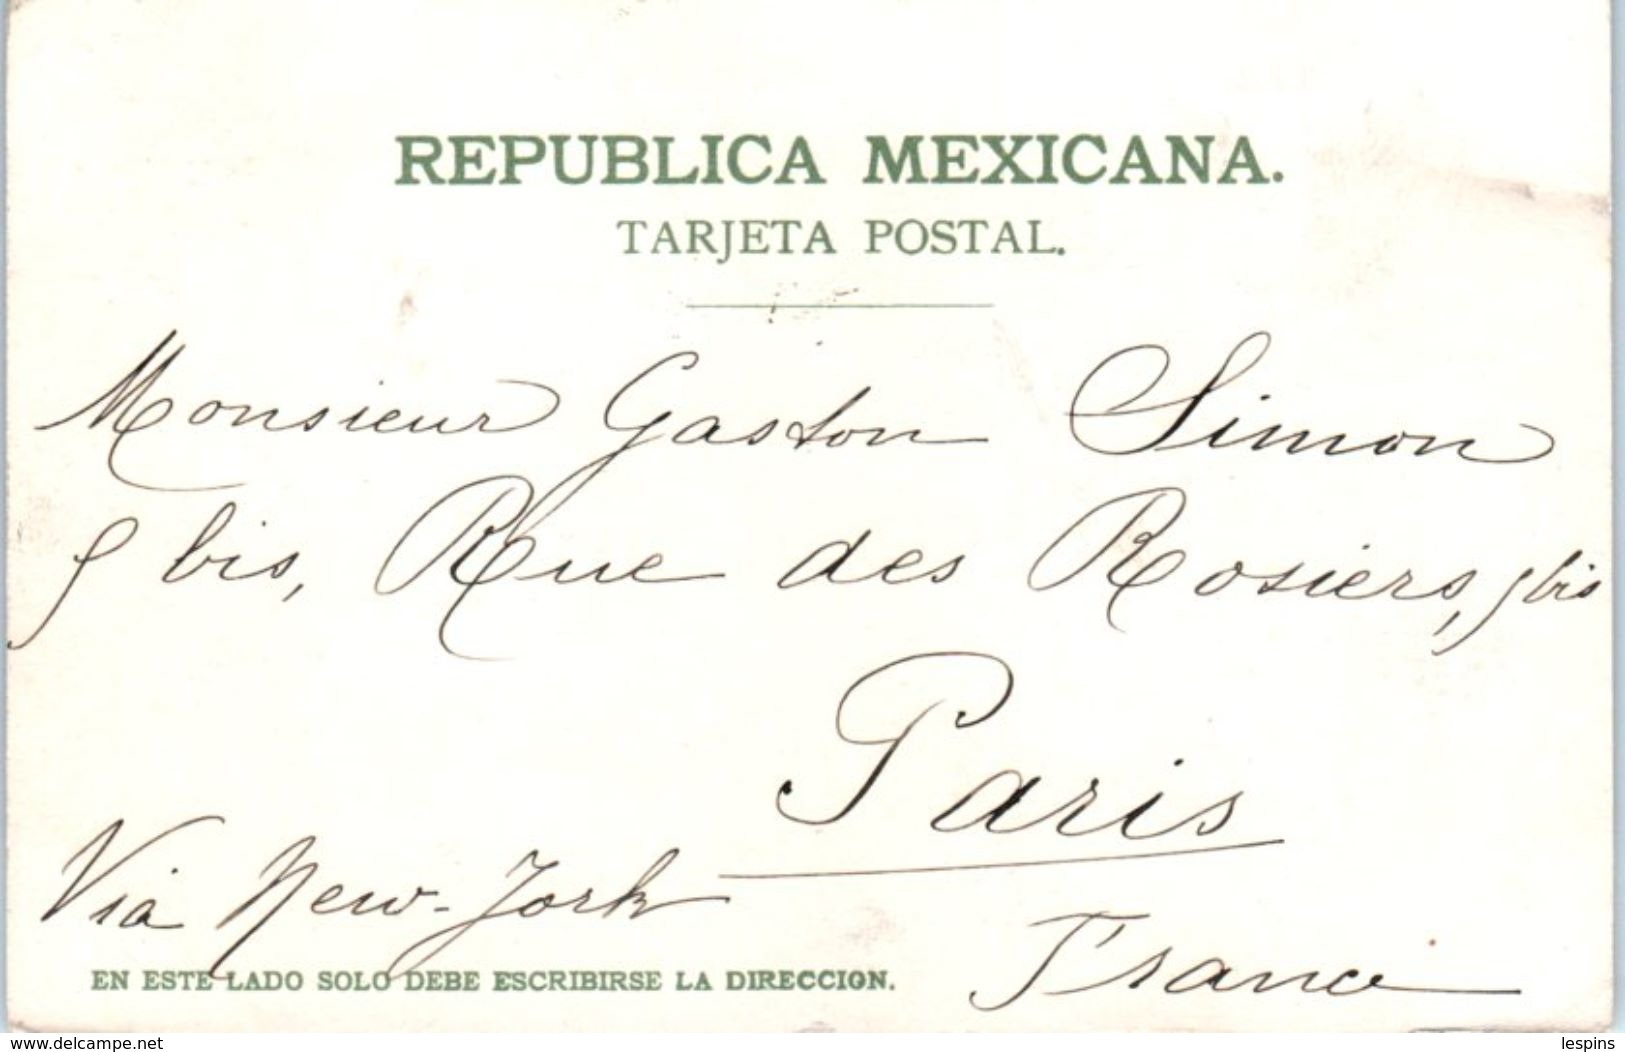 REPUBLICA MEXICANA.
TARJETA POSTAL.
Monsieur Gaston Simon
9 bis, Rue des Rosiers, 9 bis
Paris
Via New-York
France
EN ESTE LADO SOLO DEBE ESCRIBIRSE LA DIRECCION.
www.delcampe.net
lespins